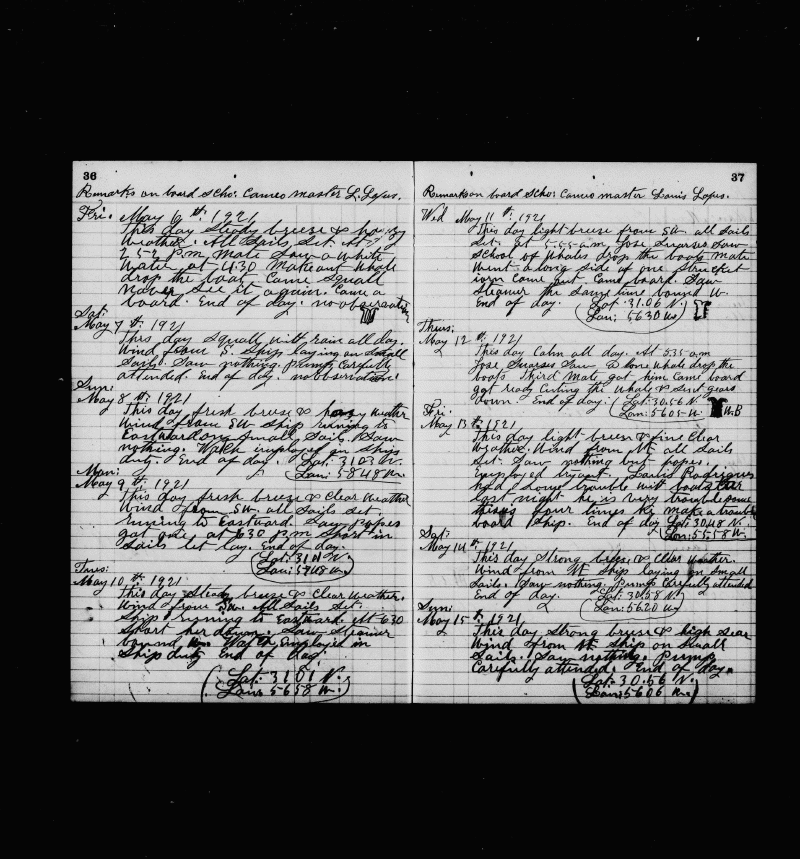 36
Remarks on board Scho: Cameo master L. Lopes.
Fri. May 6 th: 1921
This day Steady breese & hazy
Weather. All Sails Set. At
2 5-5 P.m Mate Saw a White
Water at 4.30 Make out Whale
drop the boat. Came Squall
Never See it again. Came a
board. End of day. no observation
Sat:
May 7 th: 1921
This day Squally with Rain all day.
Wind from S. Ship laying on Small
Sails. Saw nothing. Pump Carefully
attended. End of day. no observation.
Sun:
May 8 th: 1921
This day fresh breese & hazy Weather
Wind from SW Ship running to
Eastward on Small Sails. Saw
nothing. Watch employed on Ships
duty. End of day. Lat: 31.03 N.
Lon: 58 48 W.
Mon:
May 9 th: 1921
This day fresh breese & Clear Weather
Wind from SW. all Sails Set.
runing to Eastward. Saw
got one at 6.30 P.m Short in
Sails let lay. End of day.
Lat: 31 N.
Lon: 57 48 W.
Tues:
May 10. th: 1921
This day Steady breese & Clear Weather.
Wind from SW. All Sails Set.
Ship running to Eastward. At 6.30
Short her down. Saw Steamer
bound W. Watch Employed in
Ship duty End of day.
Lat: 31 01 N.
Lon: 56 58 W.
37
Remarks on board Scho: Cameo master Louis Lopes.
Wed May 11 th: 1921
This day light breese from SW. all Sails
Set. At 5-55 a.m, Jose Suarses Saw
School of Whales drop the boats mate
Went along Side of one Struck it
iorn came out. Came board. Saw
Steamer the Same time bound W.
End of day. Lat: 31.06 N.
Lon: 56 30 W.
Thurs:
May 12 th: 1921
This day Calm all day. At 5.35 a.m
Jose Suarses Saw a lone Whale drop the
boats Third Mate got him Came board
got ready Cutting the Whale & Sent gears
down. End of day. Lat: 30.56 N.
Lon: 56 05 W.
W.B
Fri:
May 13 th: 1921
This day light breese & fine Clear
Weather. Wind from all Sails
Set. Saw nothing but
Employed Rodrigues
had Some trouble with boat
last night he is very trouble some
this is four times he make a trouble
board Ship. End of day Lat: 30.48 N.
Lon: 55.58 W.
Sat:
May 14 th: 1921
This day Strong breese & Clear Weather.
Wind from Ship laying on Small
Sails. Saw nothing. Pump Carefully attended
End of day. Lat: 30.58 N.
Lon: 56 20 W
Sun:
May 15 th. 1921
This day Strong breese & high Sear
Wind from Ship on Small
Sails. Saw nothing. Pump
Carefully attended. End of day.
Lat: 30.56 N.
Lon: 56 06 W.